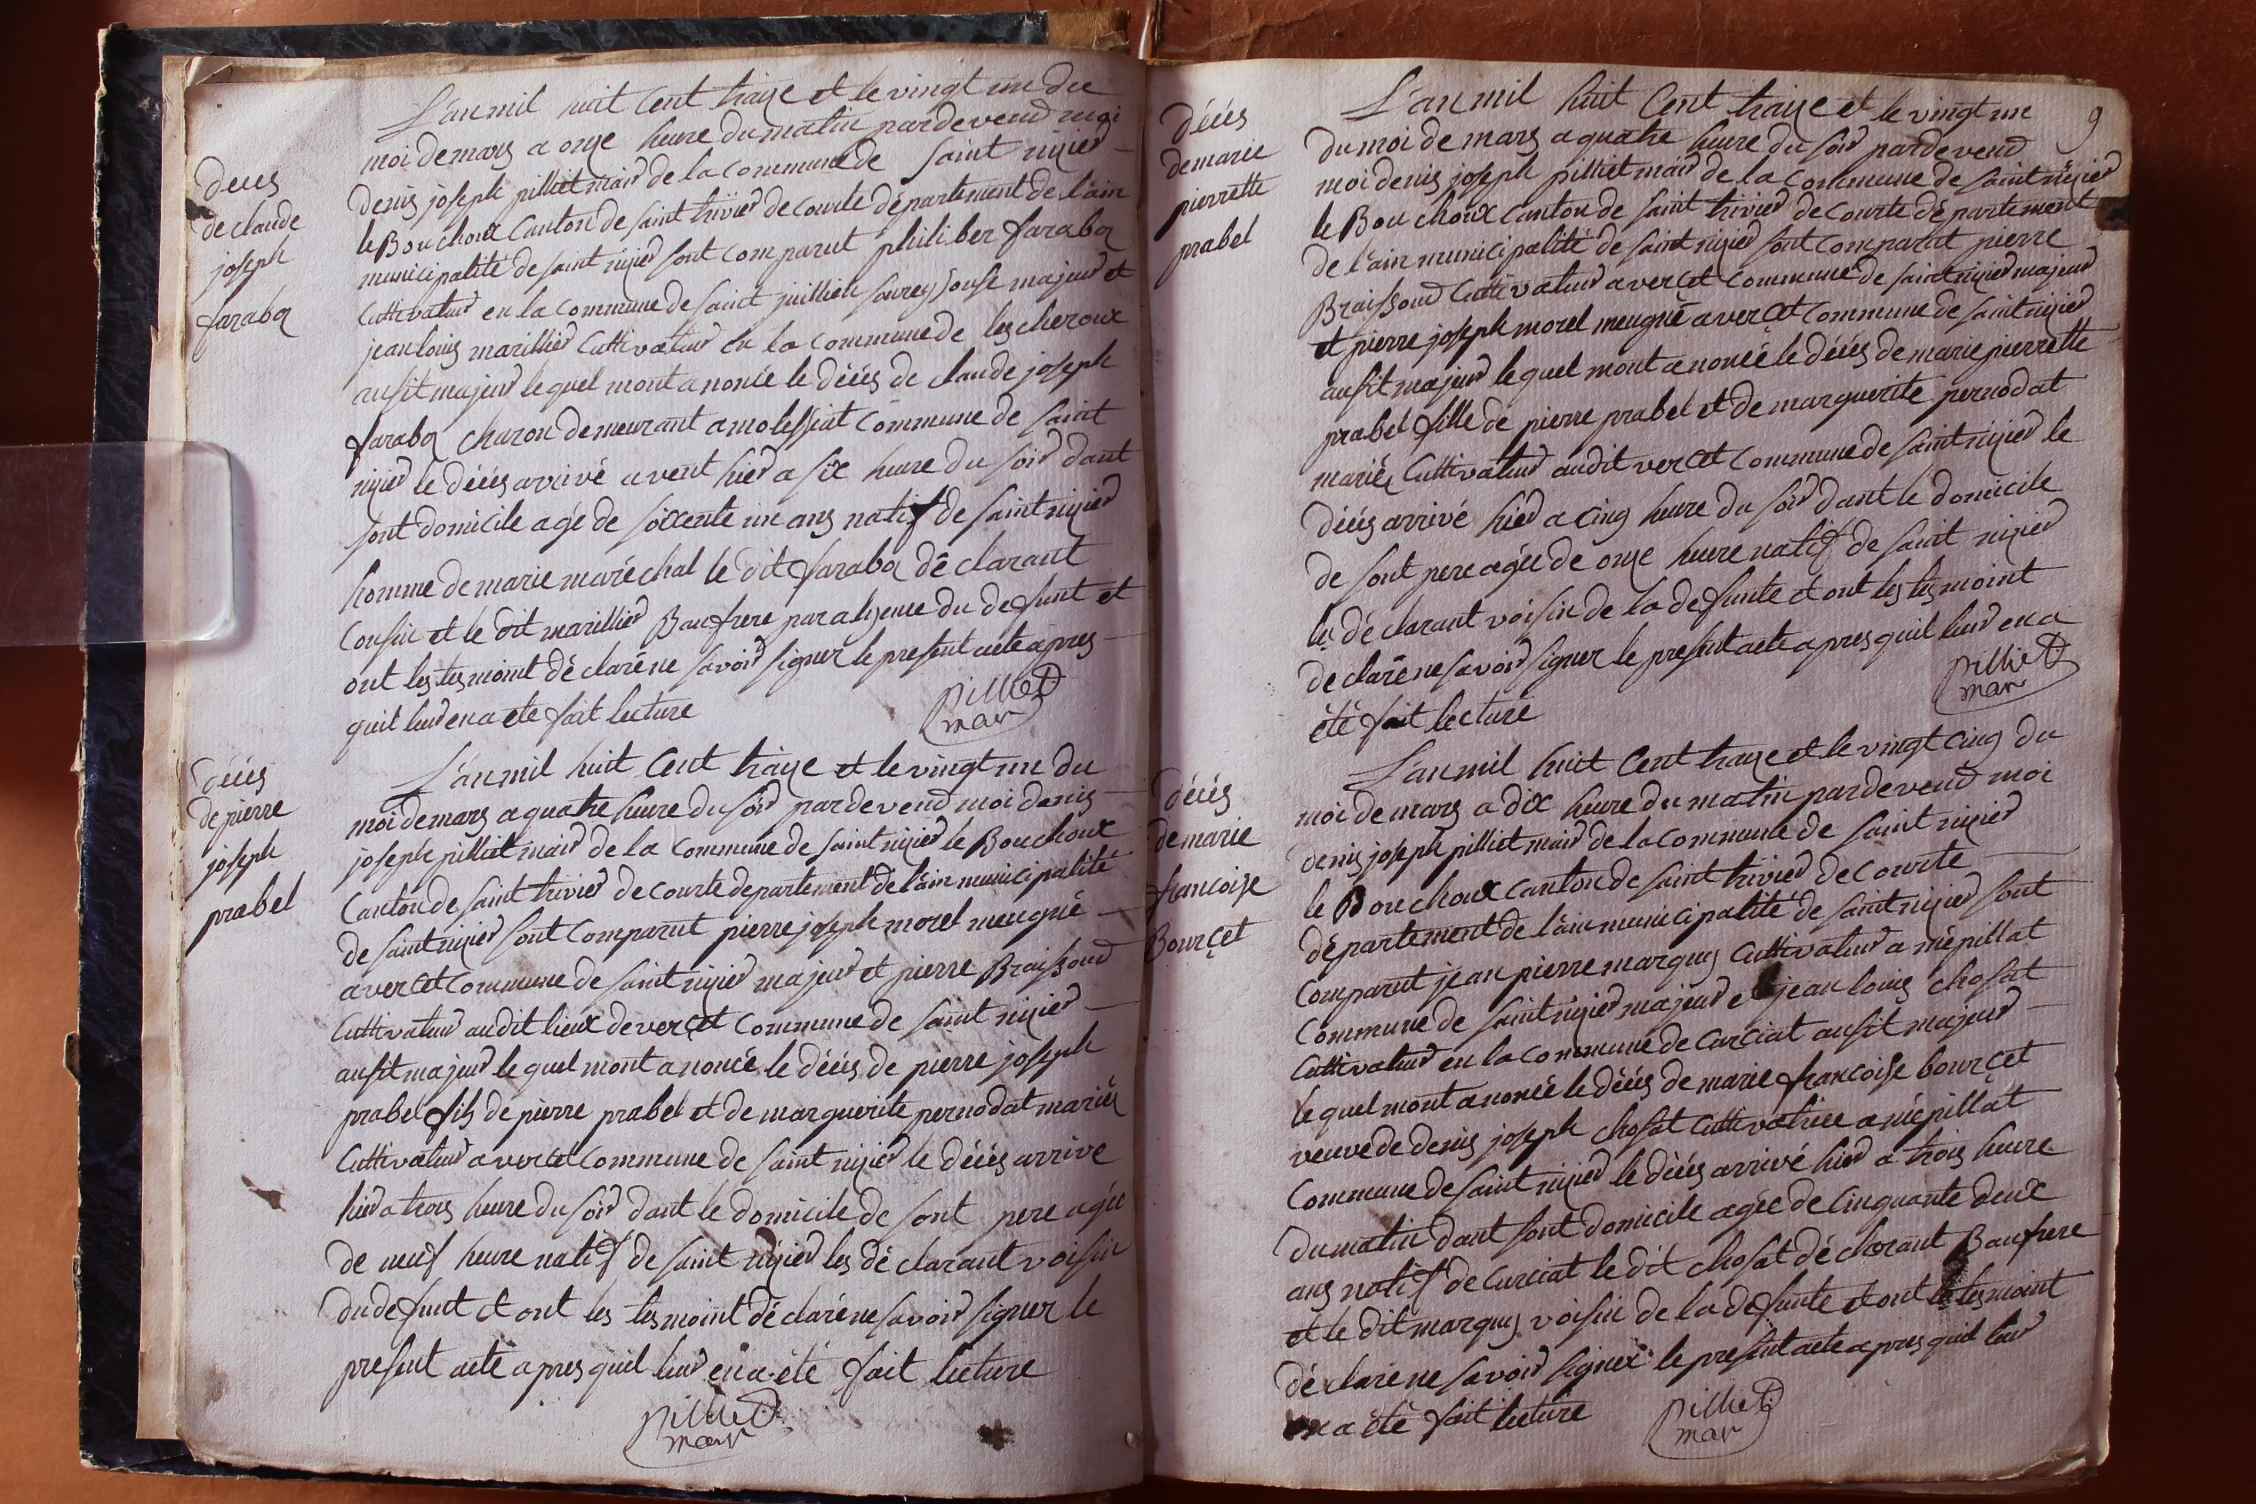 decés
de claude
joseph
faraboz
L'an mil huit Cent traize et le vingt un du
moi de mars a onze heure du matin pardevend moi
denis joseph pilliet mair de la commune de Saint nizier
le Bouchoux Canton de saint trivier de Courte département de l'ain
municipalité de saint nizier sont comparut philiber faraboz
Cuttivateur en la commune de saint juillien sur reyssouse majeur et
jean louis marillier Cuttivateur en la commune de lescheroux
ausit majeur lequel mont anoncé le décés de claude joseph
faraboz charon demeurant a molessiat commune de saint
nizier le décés arrivé avent hier a six heure du soir dant
sont domicile agé de soixente un ans natif de saint nizier
homme de marie maréchal le dit faraboz déclarant
Cousin et le dit marillier Baufrere par alyence du defunt et
ont les tesmoint déclaré ne savoir signer le present acte apres
quil leur en a ete fait lecture
pilliet
mair
décés
de pierre
joseph
prabel
L'an mil huit Cent traize et le vingt un du
moi de mars a quatre heure du soir pardevend moi denis
joseph pilliet mair de la commune de saint nizier le Bouchoux
Canton de saint trivier de Courte departement de l'ain municipalité
de saint nizier sont comparut pierre joseph morel meugné
a vercet commune de saint nizier majeur et pierre Braissoud
Cuttivateur audit lieux de verçet commune de saint nizier
ausit majeur lequel mont anoncé le décés de pierre joseph
prabel fils de pierre prabel et de marguerite pernodat mariés
Cuttivateur a vercet commune de saint nizier le décés arrive
hier a trois heure du soir dant le domicile de sont pere agée
de neuf heure natif de saint nizier les déclarant voisin
du defunt et ont les tesmoint déclaré ne savoir signer le
present acte apres quil leur en a été fait lecture
pilliet
mair
9
décés
de marie
pierrette
prabel
L'an mil huit Cent traize et le vingt un
du moi de mars a quatre heure du soir pardevend
moi denis joseph pilliet mair de la commune de saint nizier
le Bouchoux canton de saint trivier de Courte département
de l'ain municipalité de saint nizier sont comparut pierre
Braissoud Cuttivateur a verçet commune de saint nizier majeur
et pierre joseph morel meugné a vercet commune de saint nizier
ausit majeur lequel mont anoncé le décés de marie pierrette
prabel fille de pierre prabel et de marguerite pernodat
mariés Cuttivateur audit vercet commune de saint nizier le
décés arrivé hier a cinq heure du soir dant le domicile
de sont pere agée de onze heure natif de saint nizier
les déclarant voisin de la defunte et ont les tesmoint
declaré ne savoir signer le present acte apres quil leur en a
été fait lecture
pilliet
mair
décés
de marie
francoise
Bourçet
L'an mil huit Cent traize et le vingt cinq du
moi de mars a dix heure du matin pardevend moi
denis joseph pilliet mair de la commune de saint nizier
le Bouchoux canton de saint trivier de Courte
département de l'ain municipalité de saint nizier sont
comparut jean pierre marquis Cuttivateur a mépillat
commune de saint nizier majeur et jean louis chosat
Cuttivateur en la commune de Curciat ausit majeur
lequel mont anoncé le décés de marie francoise bourçet
veuve de denis joseph chosat Cuttivatrice a mépillat
Commune de saint nizier le décés arrivé hier a trois heure
du matin dant sont domicile agée de Cinquante deux
ans natif de Curciat le dit chosat déclarant Baufrere
et le dit marquis voisin de la defunte et ont les tesmoint
déclaré ne savoir signer le present acte apres quil leur
en a été fait lecture
pilliet
mair